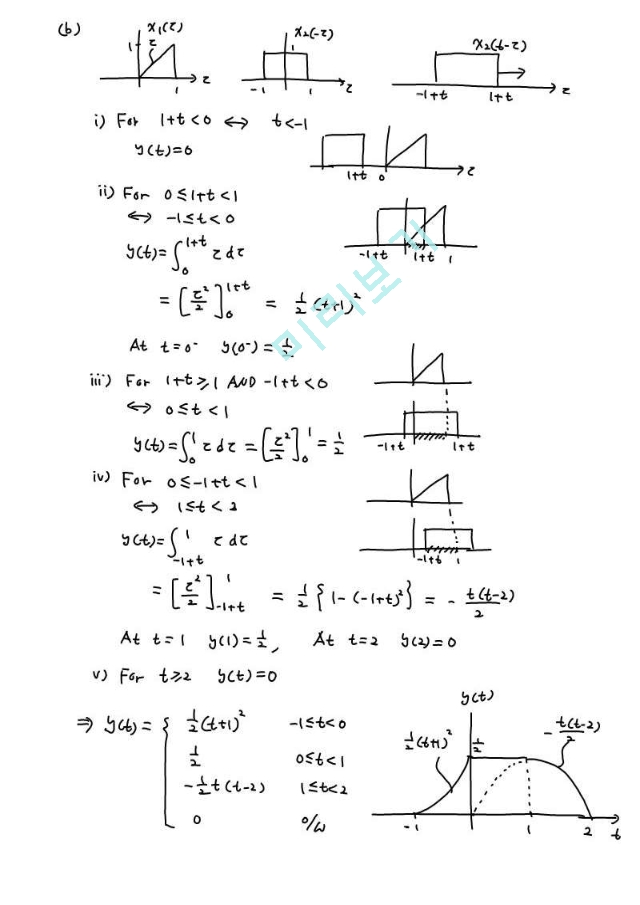 (b) x₁(τ) x₂(-τ) x₂(t-τ)
1 τ 1 τ
-1 1 1 τ
-1+t 1+t τ
i) For 1+t<0 ⇔ t<-1
y(t)=0
1+t 0 τ
ii) For 0≤1+t<1
⇔ -1≤t<0
y(t)=∫₀^{1+t} τdτ
-1+t 1+t 1
=[τ²/2]₀^{1+t} = 1/2(t+1)²
At t=0⁻ y(0⁻)=1/2
iii) For 1+t≥1 AND -1+t<0
⇔ 0≤t<1
y(t)=∫₀¹ τdτ=[τ²/2]₀¹=1/2
-1+t 1+t
iv) For 0≤-1+t<1
⇔ 1≤t<2
y(t)=∫_{-1+t}^{1} τdτ
-1+t 1
=[τ²/2]_{-1+t}^{1} = 1/2{1-(-1+t)²} = -t(t-2)/2
At t=1 y(1)=1/2, At t=2 y(2)=0
v) For t≥2 y(t)=0
⇒ y(t)={ 1/2(t+1)² -1≤t<0
1/2 0≤t<1
-1/2t(t-2) 1≤t<2
0 o/w
y(t)
1/2(t+1)² 1/2 -t(t-2)/2
-1 1 2 t